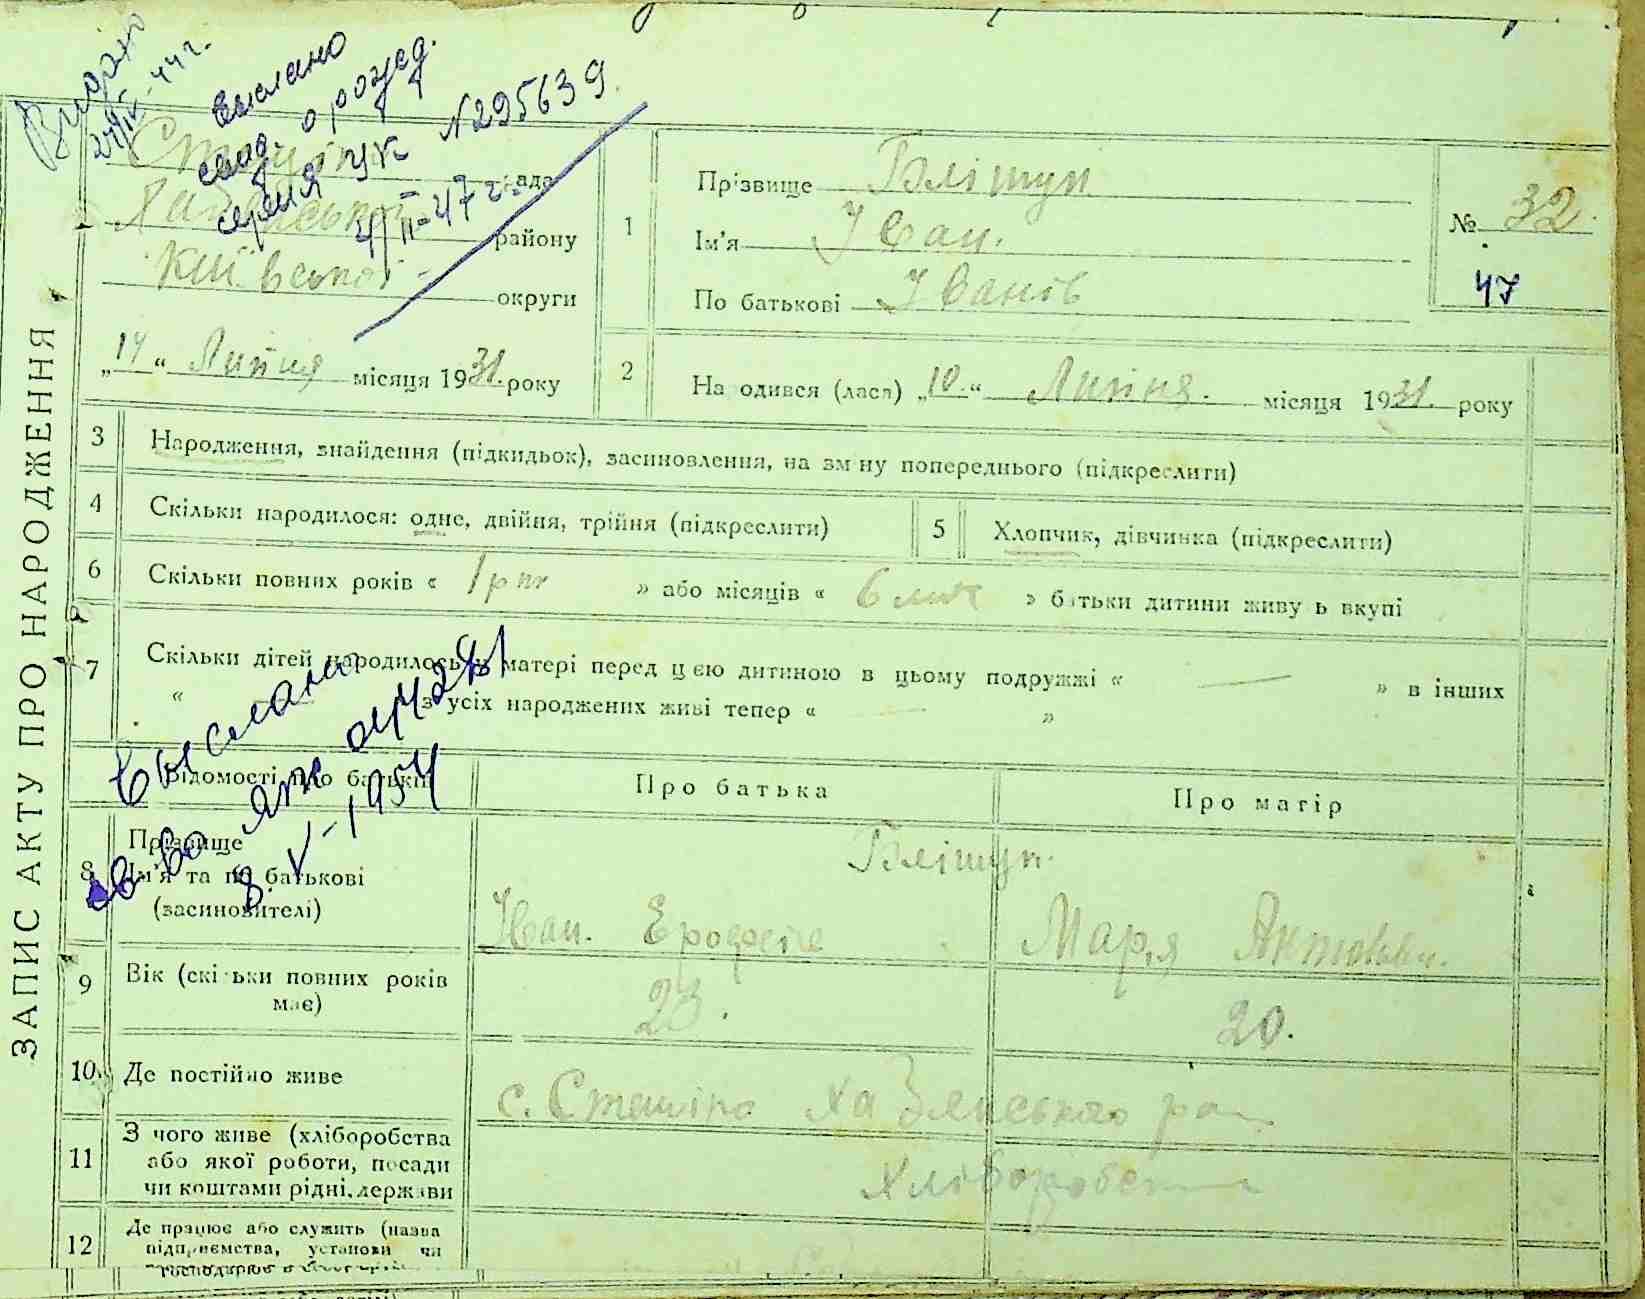 ЗАПИС АКТУ ПРО НАРОДЖЕННЯ
24/IV-44 г.
выслано
свид. о рожд.
серия УК №295639
4/II-47 г.
району
Київської округи
"14" Липня місяця 1931. року
1
Прізвище Блішун
Ім'я Іван.
По батькові Іванів
№ 32.
47
2
На одився (лася) "10." Липня. місяця 1931. року
3 Народження, знайдення (підкидьок), засиновлення, на зм ну попереднього (підкреслити)
4 Скільки народилося: одне, двійня, трійня (підкреслити)
5 Хлопчик, дівчинка (підкреслити)
6 Скільки повних років « 1 рік » або місяців « 6 міс » батьки дитини живу ь вкупі
7 Скільки дітей народилось у матері перед цією дитиною в цьому подружжі « — » в інших
« з усіх народжених живі тепер « — »
выслано
8. V-1954
Відомості про батьків
Про батька
Про матір
8 Прізвище
Ім'я та по батькові
(засиновителі)
Блішун.
Іван.
Марія
9 Вік (скі ьки повних років
має)
23.
20.
10 Де постійно живе
с. Стешіно Хабенського
11 З чого живе (хліборобства
або якої роботи, посади
чи коштами рідні, держави
Хлібороб
12 Де працює або служить (назва
підприємства, установи чи